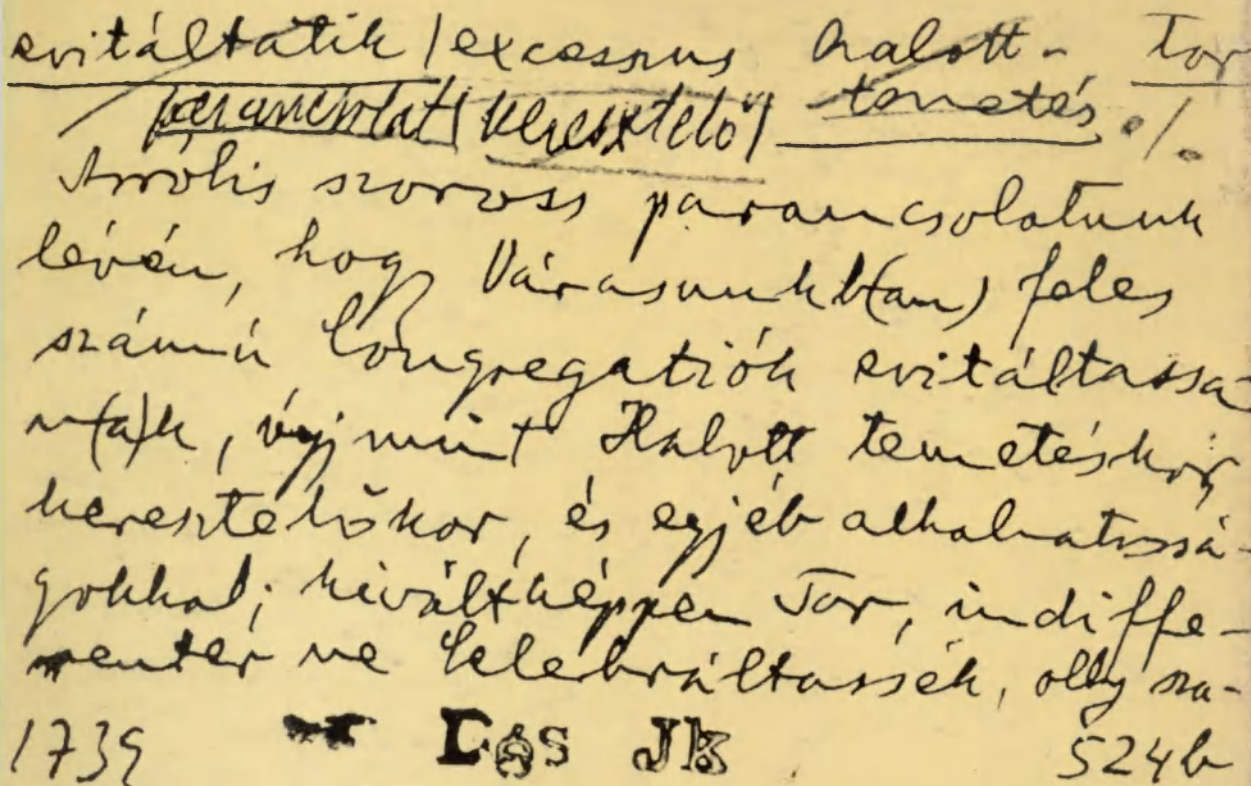 evitáltatik / excessus halott- Tor
parancsolat / keresztelő / temetés ./.
Arrólis szoross parancsolatunk
lévén, hogy Várasunkb(an) feles
számú Congregatiók evitáltassa-
n(a)k, úgjmint Halott temetéskor,
keresztelőkor, és egjéb alkalmatossá-
gokkal; kiváltképpen Tor, indiffe-
renter ne Celebráltassék, olly sza-
1739 Dés Jk 524b